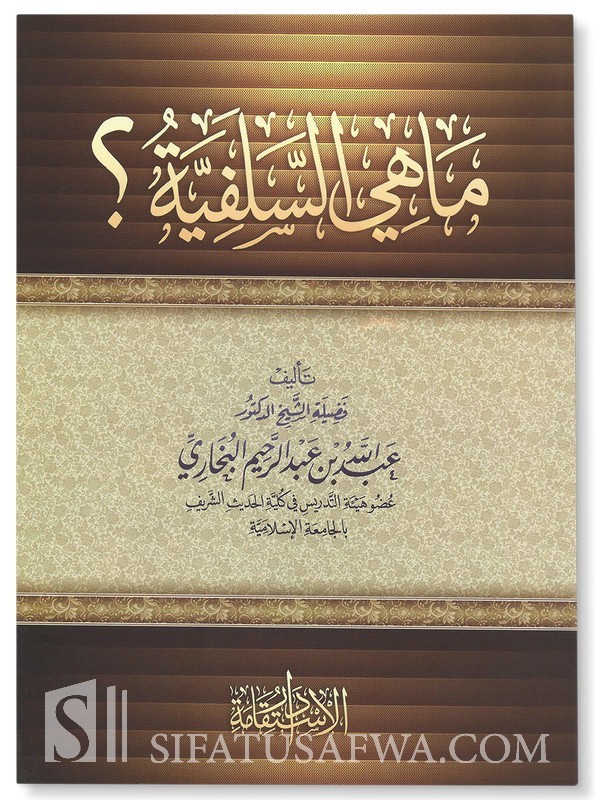 مَا هِيَ السَّلَفِيَّةُ ؟
تَأليف
فَضِيلَةِ الشَّيْخِ الدكتُور
عَبْدِ اللَّهِ بْنِ عَبْدِ الرَّحِيمِ البُخَارِيِّ
عُضْو هَيْئَةِ التَّدْرِيسِ فِي كُلِّيَّةِ الحَدِيثِ الشَّرِيفِ
بِالجَامِعَةِ الإِسْلَامِيَّةِ
دار الاستقامة
S SIFATUSAFWA.COM